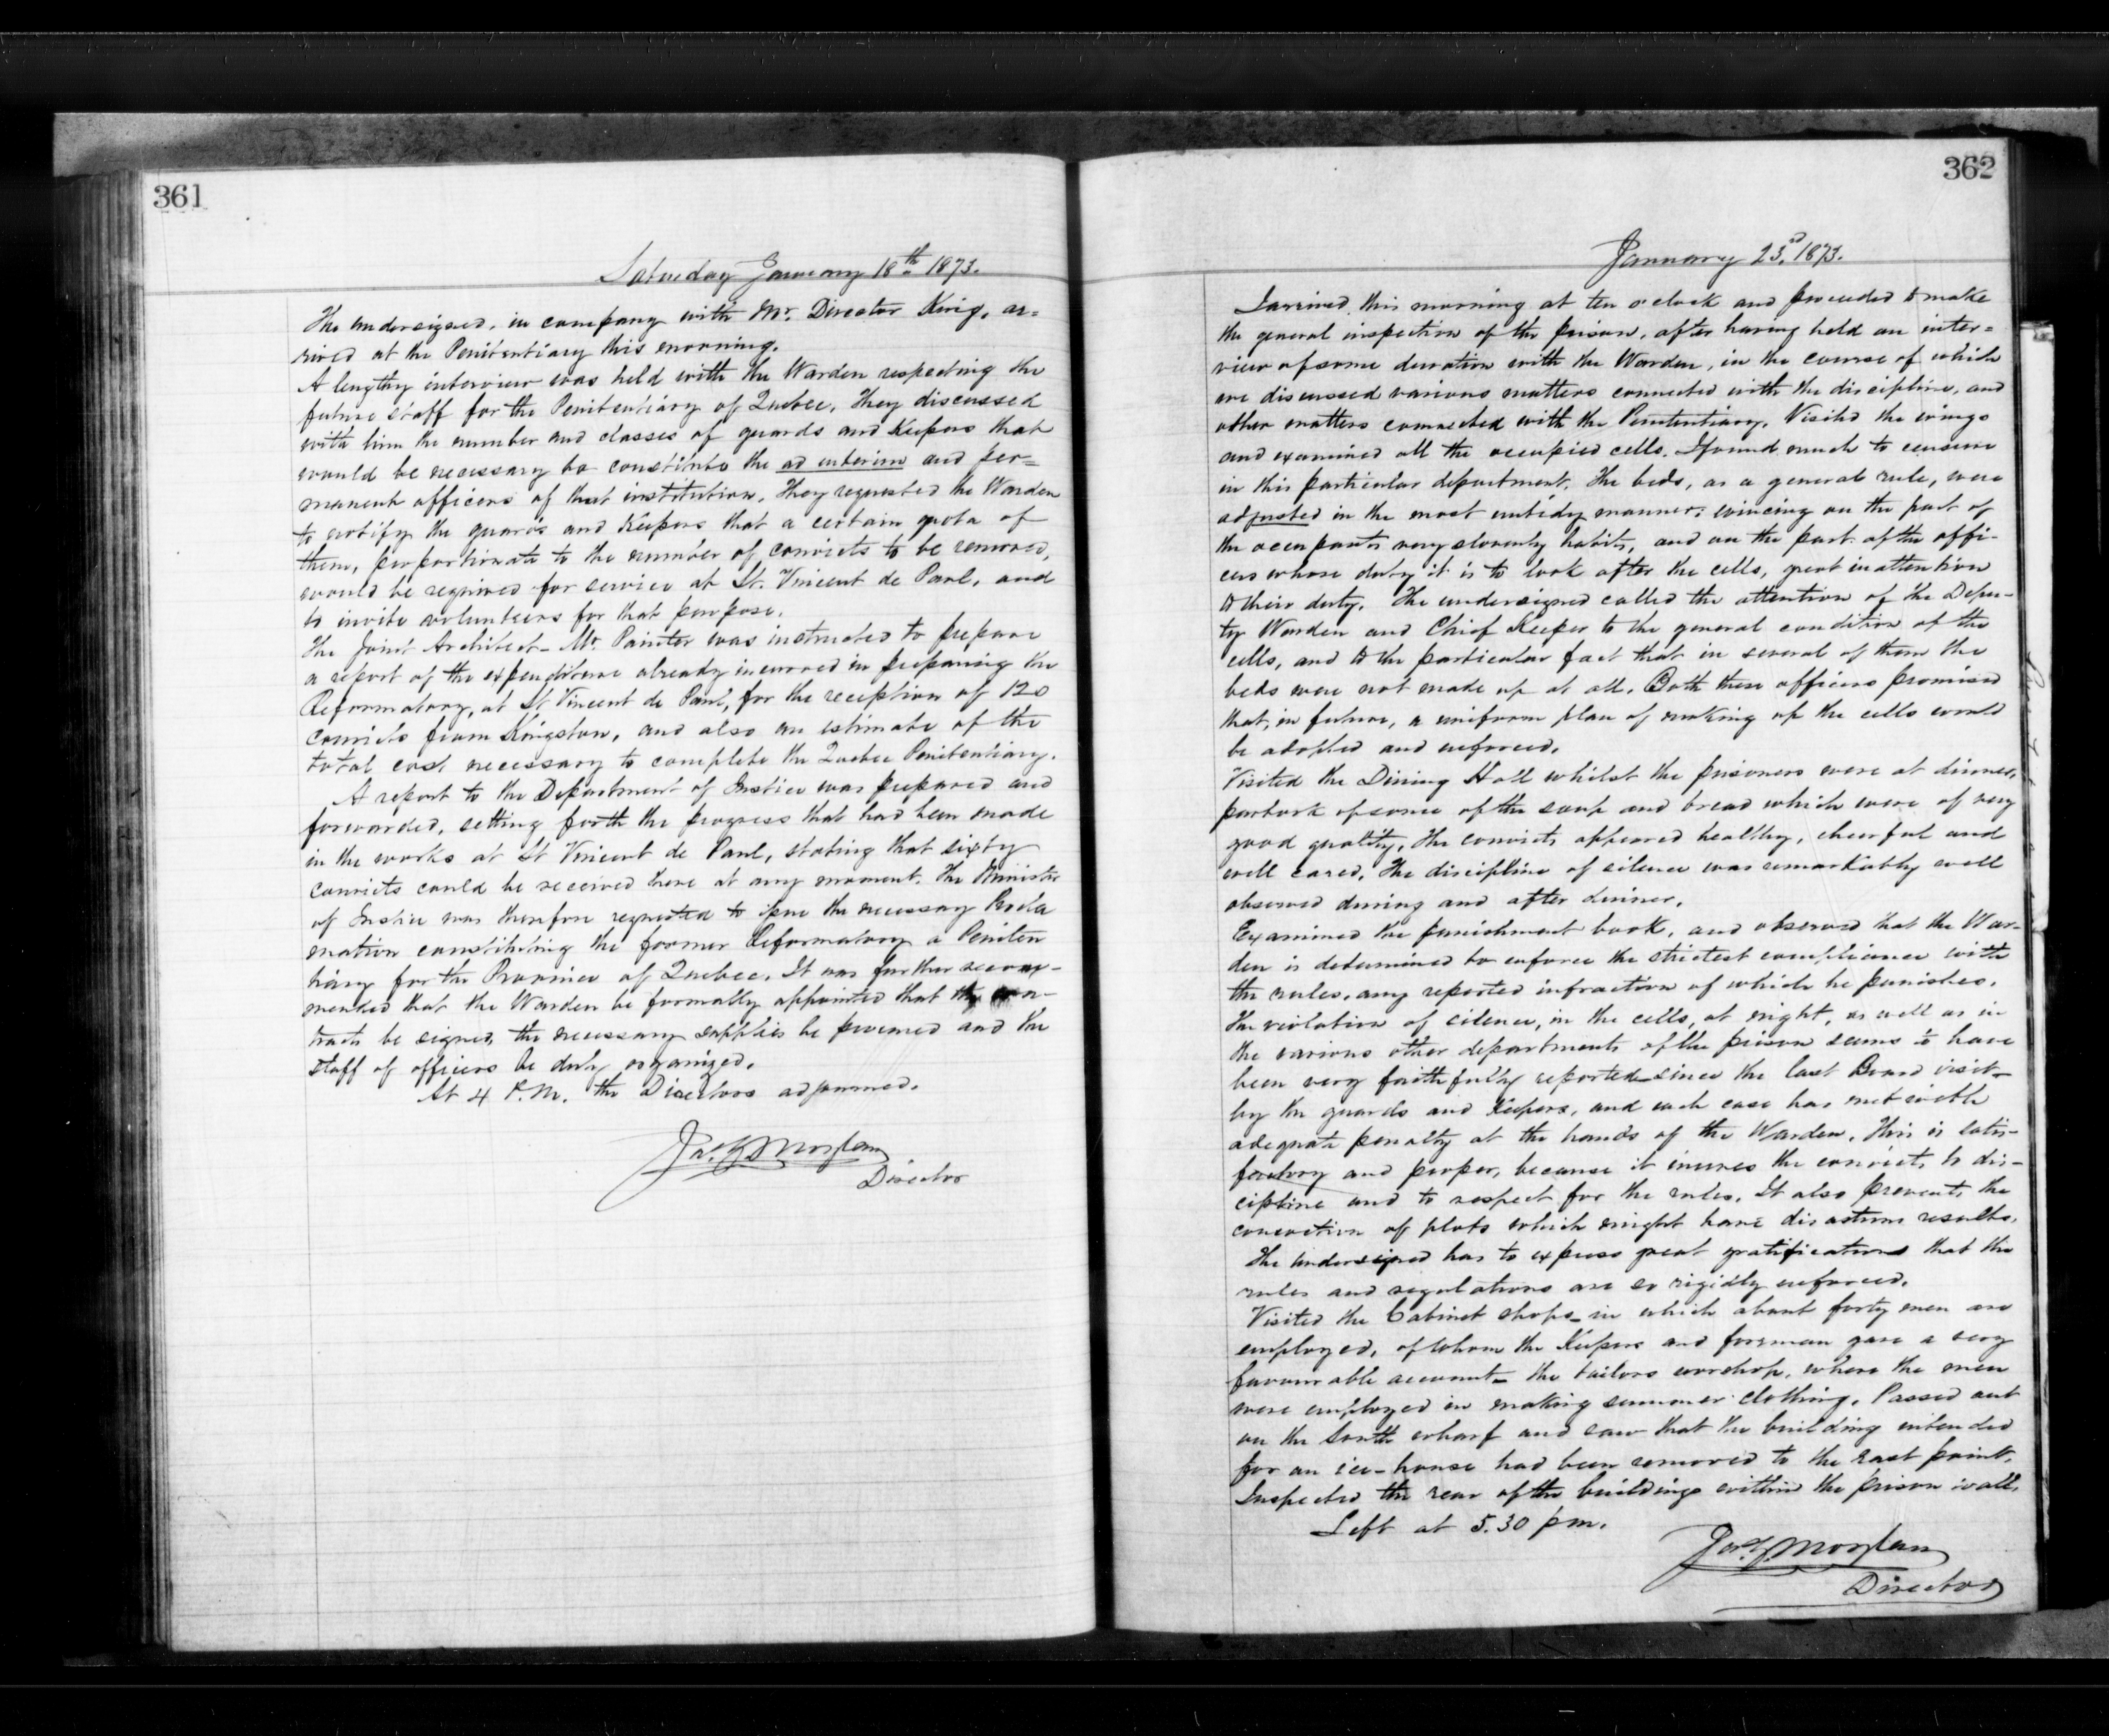 361
Saturday January 18th 1873.
The undersigned, in company with Mr. Director King, ar=
rived at the Penitentiary this morning.
A lengthy interview was held with the Warden respecting the
future staff for the Penitentiary of Quebec. They discussed
with him the number and classes of guards and Keepers that
would be necessary to constitute the ad interim and per=
manent officers of that institution. They requested the Warden
to notify the guards and Keepers that a certain quota of
them, proportionate to the number of convicts to be removed,
would be required for service at St. Vincent de Paul, and
to invite volunteers for that purpose.
The Joint Architect - Mr. Painter was instructed to prepare
a report of the expenditure already incurred in preparing the
Reformatory, at St Vincent de Paul, for the reception of 120
convicts from Kingston, and also an estimate of the
total cost necessary to complete the Quebec Penitentiary.
A report to the Department of Justice was prepared and
forwarded, setting forth the progress that had been made
in the works at St Vincent de Paul, stating that sixty
convicts could be received there at any moment. The Minister
of Justice was therefore requested to issue the necessary Procla
mation constituting the former Reformatory a Peniten
tiary for the Province of Quebec. It was further recom-
mended that the Warden be formally appointed that the con-
tracts be signed, the necessary supplies be procured and the
staff of officers be duly organized.
At 4 P.M. the Directors adjourned.
Jas. G. Moylan
Director
362
January 23rd 1873.
I arrived this morning at ten o'clock and proceeded to make
the general inspection of the prison, after having held an inter=
view of some duration with the Warden, in the course of which
we discussed various matters connected with the discipline, and
other matters connected with the Penitentiary. Visited the wings
and examined all the occupied cells. I found much to censure
in this particular department. The beds, as a general rule, were
adjusted in the most untidy manner; evincing on the part of
the occupants very slovenly habits, and on the part of the offi-
cers whose duty it is to look after the cells, great inattention
to their duty. The undersigned called the attention of the Depu-
ty Warden and Chief Keeper to the general condition of the
cells, and to the particular fact that in several of them the
beds were not made up at all. Both these officers promised
that, in future, a uniform plan of making up the cells would
be adopted and enforced.
Visited the Dining Hall whilst the prisoners were at dinner,
partook of some of the soup and bread which were of very
good quality. The convicts appeared healthy, cheerful and
well cared. The discipline of silence was remarkably well
observed during and after dinner.
Examined the punishment book, and observed that the War-
den is determined to enforce the strictest compliance with
the rules, any reported infraction of which he punishes.
The violation of silence, in the cells, at night, as well as in
the various other departments of the prison seems to have
been very faithfully reported - since the last Board visit -
by the guards and Keepers, and each case has met with
adequate penalty at the hands of the Warden. This is satis-
factory and proper, because it inures the convicts to dis-
cipline and to respect for the rules. It also prevents the
concoction of plots which might have disastrous results.
The undersigned has to express great gratification that the
rules and regulations are so rigidly enforced.
Visited the Cabinet shops - in which about forty men are
employed, of whom the Keepers and foreman gave a very
favourable account - the tailors workshop, where the men
were employed in making summer clothing. Passed out
on the South wharf and saw that the building intended
for an ice-house had been removed to the east point.
Inspected the rear of the buildings within the prison wall.
Left at 5.30 pm.
Jas. G. Moylan
Director